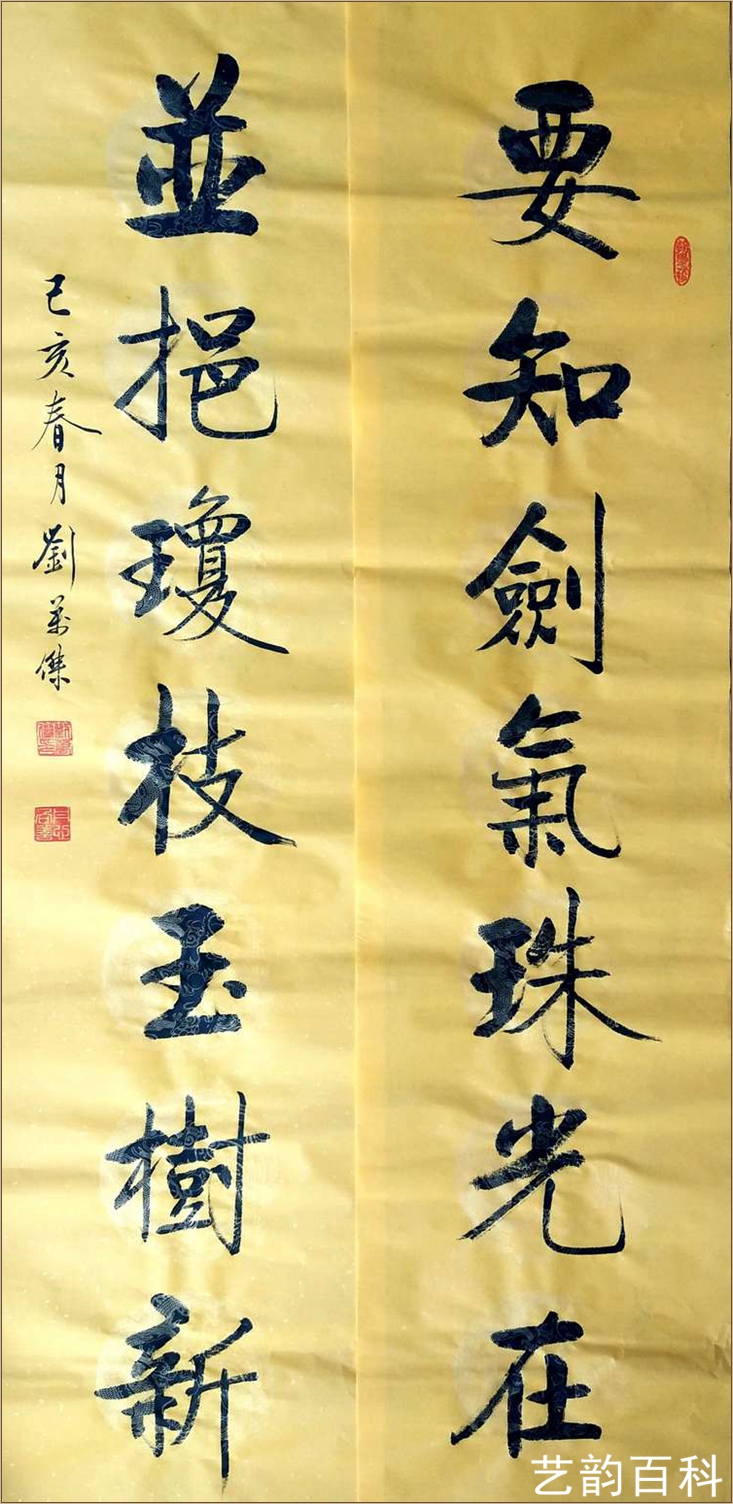 要知劍氣珠光在
並挹瓊枝玉樹新
己亥春月劉萬傑
艺韵百科